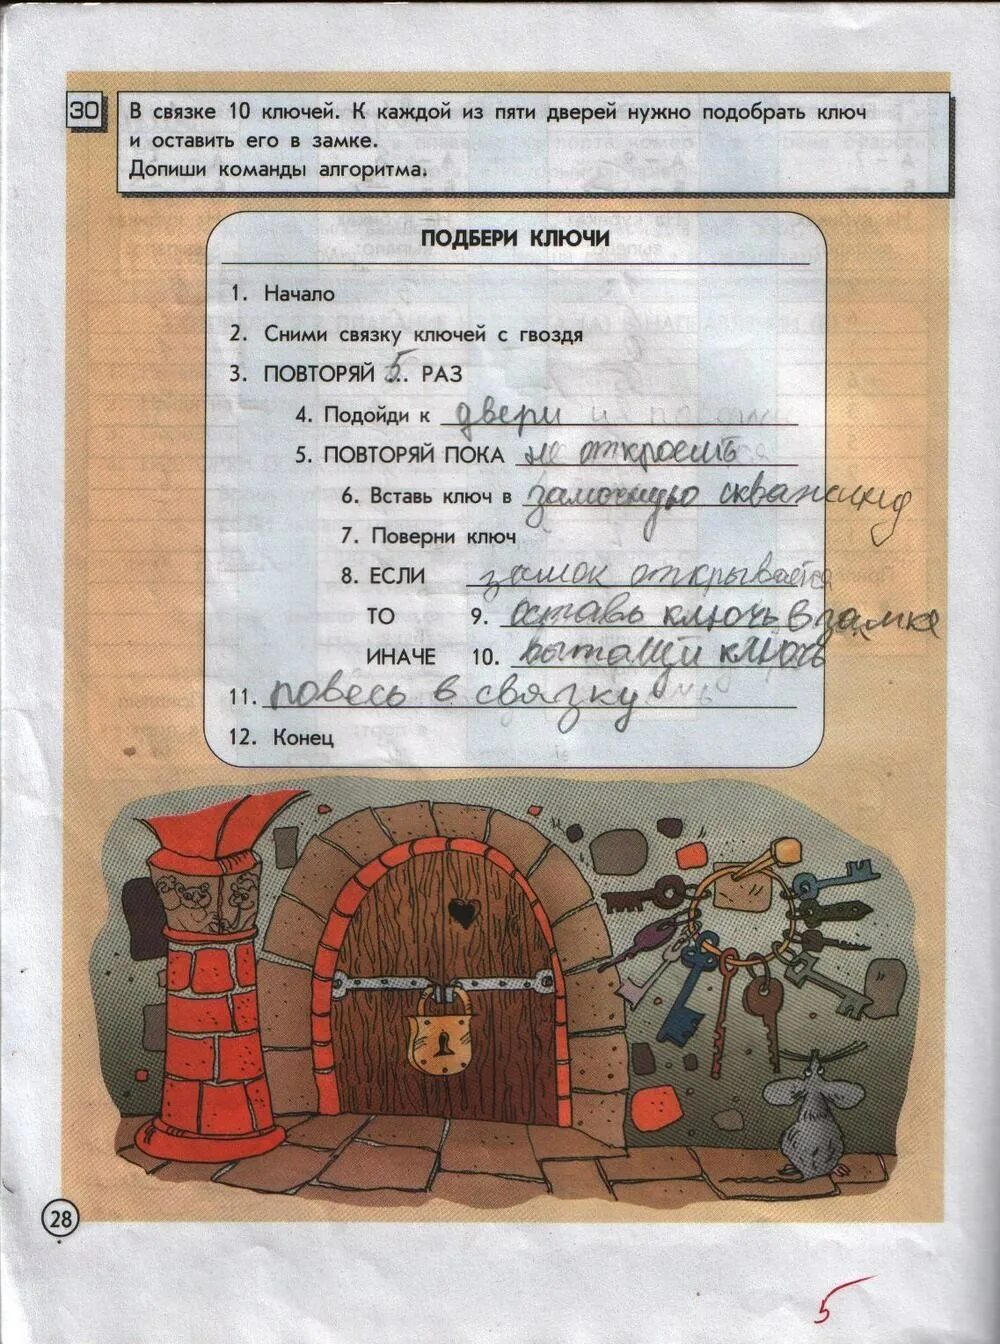 30
В связке 10 ключей. К каждой из пяти дверей нужно подобрать ключ
и оставить его в замке.
Допиши команды алгоритма.
ПОДБЕРИ КЛЮЧИ
1. Начало
2. Сними связку ключей с гвоздя
3. ПОВТОРЯЙ 5.. РАЗ
4. Подойди к двери и
5. ПОВТОРЯЙ ПОКА не откроешь
6. Вставь ключ в замочную скважину
7. Поверни ключ
8. ЕСЛИ замок открывается
ТО 9. оставь ключь в замке
ИНАЧЕ 10. вытащи ключь
11. повесь в связку
12. Конец
28
5